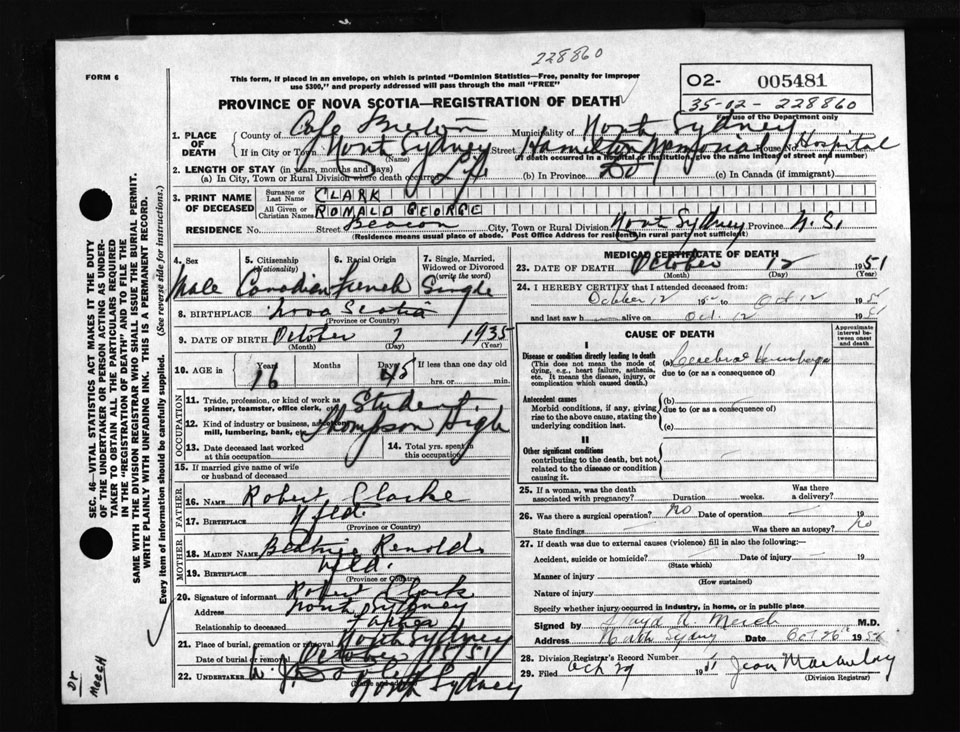 228860
FORM 6
This form, if placed in an envelope, on which is printed "Dominion Statistics—Free, penalty for improper
use $300," and properly addressed will pass through the mail "FREE"
O2- 005481
35-02-228860
For use of the Department only
PROVINCE OF NOVA SCOTIA—REGISTRATION OF DEATH
1. PLACE OF DEATH County of Cape Breton Municipality of North Sydney
If in City or Town North Sydney (Name) Street Hamilton Memorial House No. Hospital
(If death occurred in a hospital or institution, give the name instead of street and number)
2. LENGTH OF STAY (in years, months and days)
(a) In City, Town or Rural Division where death occurred Life (b) In Province Do (c) In Canada (if immigrant)
3. PRINT NAME OF DECEASED Surname or Last Name CLARK
All Given or Christian Names RONALD GEORGE
RESIDENCE No. Street Beacon City, Town or Rural Division North Sydney Province N.S.
(Residence means usual place of abode. Post Office Address for residents in rural party not sufficient)
4. Sex Male
5. Citizenship (Nationality) Canadian
6. Racial Origin French
7. Single, Married, Widowed or Divorced (write the word) Single
8. BIRTHPLACE Nova Scotia
(Province or Country)
9. DATE OF BIRTH October 7 1935
(Month) (Day) (Year)
10. AGE in Years 16 Months Days 5 If less than one day old
hrs. or min.
OCCUPATION
11. Trade, profession, or kind of work as spinner, teamster, office clerk, etc. Student
12. Kind of industry or business, as cotton mill, lumbering, bank, etc. Thompson High
13. Date deceased last worked at this occupation
14. Total yrs. spent in this occupation
15. If married give name of wife or husband of deceased
FATHER
16. NAME Robert Clarke
17. BIRTHPLACE Nfld.
(Province or Country)
MOTHER
18. MAIDEN NAME Beatrice Renolds
19. BIRTHPLACE Nfld.
(Province or Country)
20. Signature of informant Robert Clark
Address North Sydney
Relationship to deceased Father
21. Place of burial, cremation or removal North Sydney
Date of burial or removal October 15/51
22. UNDERTAKER
North Sydney
MEDICAL CERTIFICATE OF DEATH
23. DATE OF DEATH October 12 1951
(Month) (Day)
24. I HEREBY CERTIFY that I attended deceased from:
October 12 to Oct 12 1951
and last saw h alive on Oct. 12 1951
CAUSE OF DEATH
Approximate interval between onset and death
I
Disease or condition directly leading to death
(This does not mean the mode of dying, e.g., heart failure, asthenia, etc. It means the disease, injury, or complication which caused death.)
(a) Cerebral Hemorrhage
due to (or as a consequence of)
Antecedent causes
Morbid conditions, if any, giving rise to the above cause, stating the underlying condition last.
(b)
due to (or as a consequence of)
(c)
II
Other significant conditions
contributing to the death, but not related to the disease or condition causing it.
25. If a woman, was the death associated with pregnancy? Duration weeks. Was there a delivery?
26. Was there a surgical operation? no Date of operation 19
State findings Was there an autopsy? no
27. If death was due to external causes (violence) fill in also the following:—
Accident, suicide or homicide? Date of injury 19
(State which)
Manner of injury
(How sustained)
Nature of injury
Specify whether injury occurred in industry, in home, or in public place
Signed by Meech M.D.
Address North Sydney Date Oct 26th 195
28. Division Registrar's Record Number
29. Filed Oct 29 1951 Jean Macaulay
(Division Registrar)
SEC. 46—VITAL STATISTICS ACT MAKES IT THE DUTY
OF THE UNDERTAKER OR PERSON ACTING AS UNDER-
TAKER TO OBTAIN ALL THE PARTICULARS REQUIRED
IN THE "REGISTRATION OF DEATH" AND TO FILE THE
SAME WITH THE DIVISION REGISTRAR WHO SHALL ISSUE THE BURIAL PERMIT.
WRITE PLAINLY WITH UNFADING INK. THIS IS A PERMANENT RECORD.
Every item of information should be carefully supplied. (See reverse side for instructions.)
Dr
MEECH